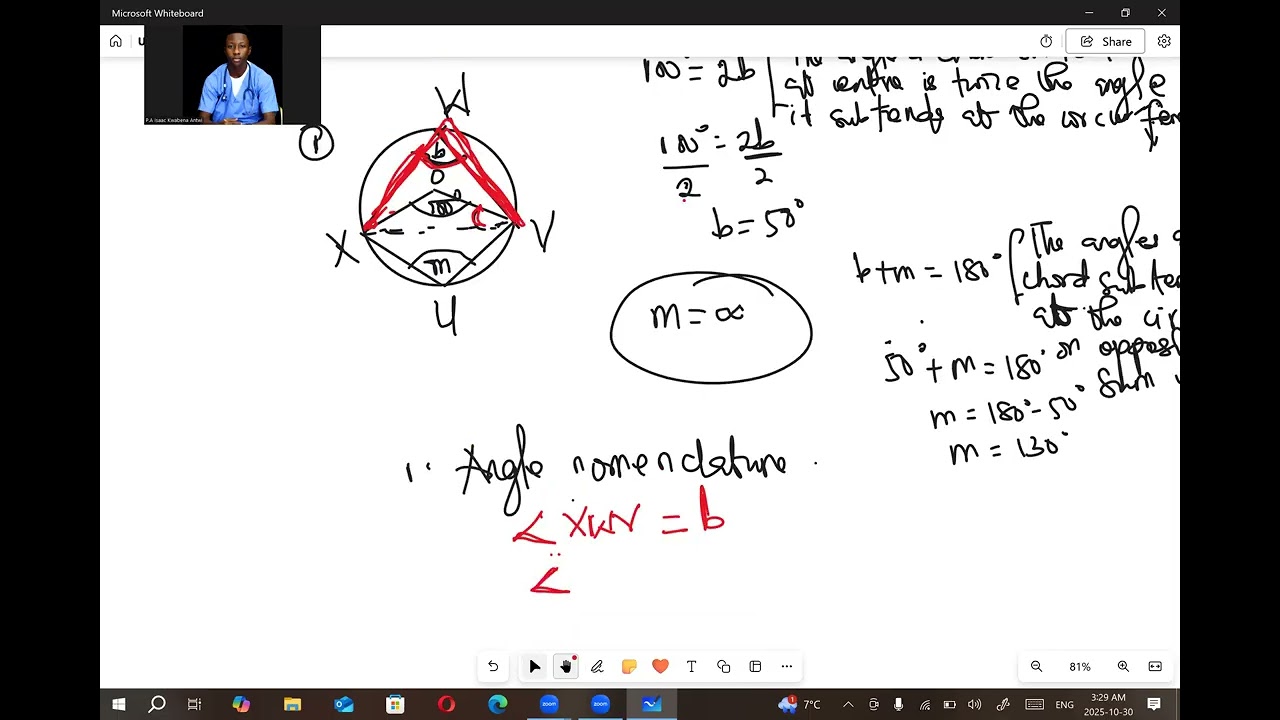 Microsoft Whiteboard
Share
P.A Isaac Kwabena Antwi
W
1
b
O
100°
X
V
m
U
100° = 2b
at centre is twice the angle
it subtends at the circumfer
100° = 2b
2 2
b = 50°
b+m = 180°
The angles a
chord subte
at the cir
on opposi
sum
50° + m = 180°
m = 180° - 50°
m = 130°
m = ∞
1. Angle nomenclature
∠ XWV = b
∠
81%
zoom
zoom
1
7°C
ENG
3:29 AM
2025-10-30